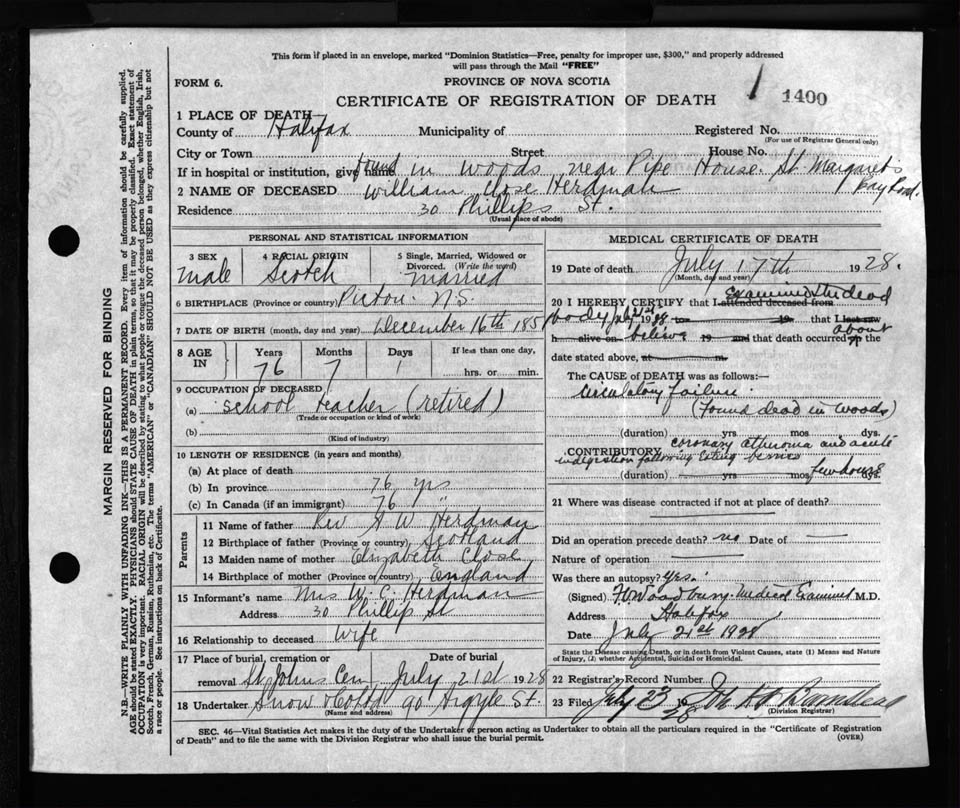 This form if placed in an envelope, marked "Dominion Statistics—Free, penalty for improper use, $300," and properly addressed
will pass through the Mail "FREE"
FORM 6.
PROVINCE OF NOVA SCOTIA
CERTIFICATE OF REGISTRATION OF DEATH
1400
1 PLACE OF DEATH—
County of Halifax Municipality of Registered No.
(For use of Registrar General only)
City or Town Street House No.
If in hospital or institution, give name found in woods near Pipe House. St. Margaret's
Bay Road.
2 NAME OF DECEASED William Close Herdman
Residence 30 Phillips St.
(Usual place of abode)
PERSONAL AND STATISTICAL INFORMATION
3 SEX 4 RACIAL ORIGIN 5 Single, Married, Widowed or
Divorced. (Write the word)
Male Scotch Married
6 BIRTHPLACE (Province or country) Pictou N.S.
7 DATE OF BIRTH (month, day and year) December 16th 1851
8 AGE IN Years Months Days If less than one day,
76 7 1 hrs. or min.
9 OCCUPATION OF DECEASED
(a) School teacher (retired)
(Trade or occupation or kind of work)
(b)
(Kind of industry)
10 LENGTH OF RESIDENCE (in years and months)
(a) At place of death
(b) In province 76 yrs
(c) In Canada (if an immigrant) 76 "
Parents
11 Name of father Rev A W Herdman
12 Birthplace of father (Province or country) Scotland
13 Maiden name of mother Elizabeth Close
14 Birthplace of mother (Province or country) England
15 Informant's name Mrs W. C. Herdman
Address 30 Phillip St
16 Relationship to deceased Wife
17 Place of burial, cremation or Date of burial
removal St Johns Cem July 21st 1928
18 Undertaker Snow & Co Ltd 90 Argyle St.
(Name and address)
MEDICAL CERTIFICATE OF DEATH
19 Date of death July 17th 1928.
(Month, day and year)
20 I HEREBY CERTIFY that I attended deceased from examined the dead
body July 21st 1928 to 19 that I last saw
h alive on believe 19 and that death occurred about the
date stated above, at m.
The CAUSE OF DEATH was as follows:—
Circulatory failure.
(Found dead in woods)
(duration) yrs mos dys.
CONTRIBUTORY coronary atheroma and acute
indigestion following eating berries
(duration) yrs mos few hours dys.
21 Where was disease contracted if not at place of death?
Did an operation precede death? no Date of
Nature of operation
Was there an autopsy? Yes.
(Signed) Woodbury. Medical Examiner M.D.
Address Halifax
Date July 21st 1928
State the Disease causing Death, or in death from Violent Causes, state (1) Means and Nature
of Injury, (2) whether Accidental, Suicidal or Homicidal.
22 Registrar's Record Number
23 Filed July 23 1928
(Division Registrar)
SEC. 46—Vital Statistics Act makes it the duty of the Undertaker or person acting as Undertaker to obtain all the particulars required in the "Certificate of Registration
of Death" and to file the same with the Division Registrar who shall issue the burial permit.
(OVER)
MARGIN RESERVED FOR BINDING
N.B.—WRITE PLAINLY WITH UNFADING INK—THIS IS A PERMANENT RECORD. Every item of information should be carefully supplied.
AGE should be stated EXACTLY. PHYSICIANS should STATE CAUSE OF DEATH in plain terms, so that it may be properly classified. Exact statement of
OCCUPATION is very important. RACIAL ORIGIN will be described by stating to what people or tongue the deceased person belonged, whether English, Irish,
Scotch, French, German, Russian, Ruthenian, etc. The terms "AMERICAN" or "CANADIAN" SHOULD NOT BE USED as they express citizenship but not
a race or people. See instructions on back of Certificate.